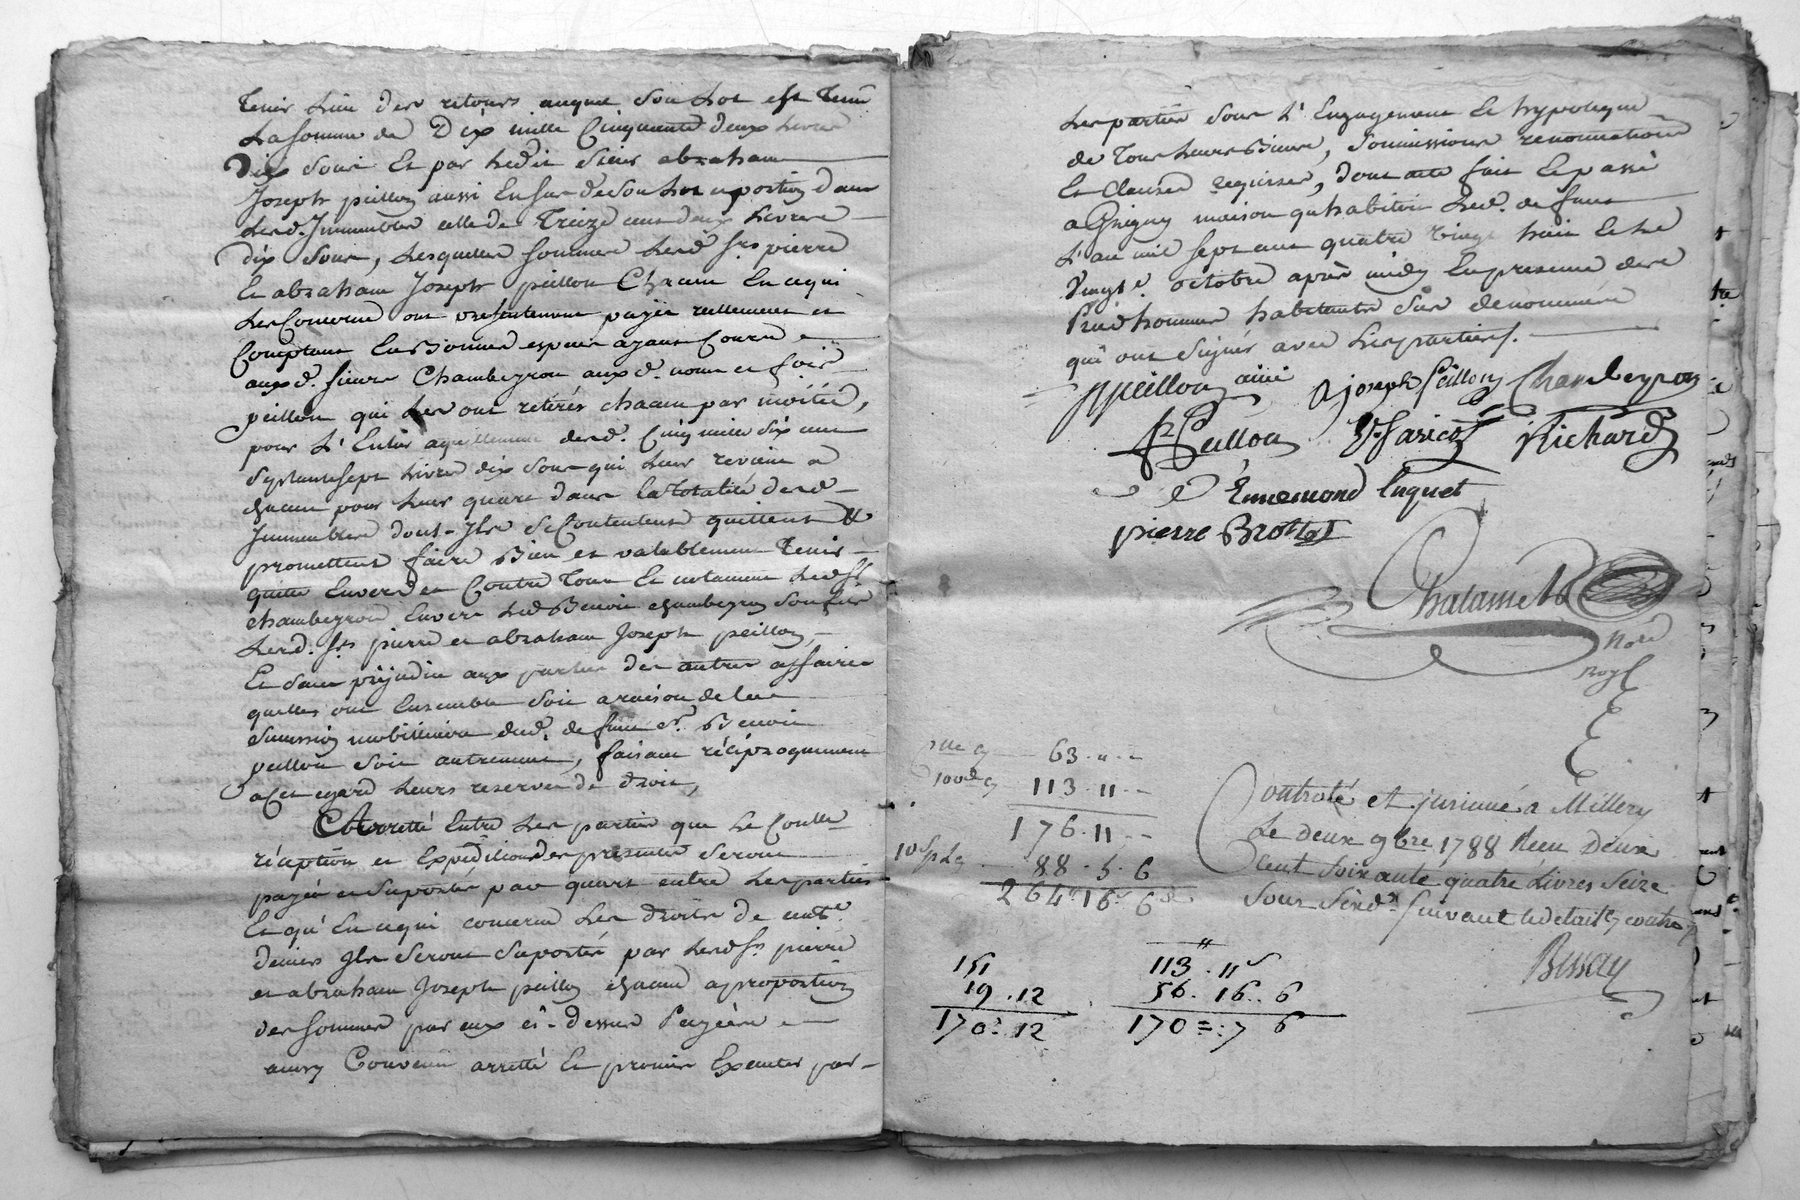 Tenir Lieu des retours auquel son Lot est Tenu
La somme de Dix mille Cinquante deux Livres
Dix sous Et par Ledit sieur abraham
Joseph peillon aussi En sus de son Lot et portion dans
Lesd. Immeubles celle de Treize cent deux Livres
dix sous, Lesquelles sommes Lesd srs pierre
Et abraham Joseph peillon Chacun En ce qui
Les Concerne ont presentement payée reellement et
Comptant En Bonnes especes ayant Cours
auxd. sieurs Chambeyron auxd. noms et fois
peillon qui Les ont retirés chacun par moitié,
pour L'Entier desd. Cinq mille six cent
septante sept Livres dix sous qui Leur revient a
chacun pour Leur quart dans La Totalité desd
Immeubles dont Ils se Contentent quittent &
promettent faire Bien et valablement Tenir
quitte Envers et Contre Tous Et notamment Led sr
chambeyron Envers Led Benoit chambeyron son fils
Lesd. srs pierre et abraham Joseph peillon,
Et sans prejudice aux parties des autres affaires
quelles ont Ensemble soit a raison de leur
succession mobilliaire dud. defunt sr. Benoit
peillon soit autrement, faisant réciproquement
a Cet egard Leurs reserves de droit,
Arretté Entre Les parties que Le Controlle
réception et Expédition des presentes seront
payés et suportés par quart entre Les parties
Et qu'En ce qui concerne Les droits de cente.
denier Ils seront suportés par Lesd srs pierre
et abraham Joseph peillon chacun a proportion
des sommes par eux ci-dessus Payées
ainsy Convenu arretté Et promis Executer par
Les parties sous L'Engagement Et hypoteque
de Tous Leurs Biens, soumissions renonciations
Et Clauses requises, dont acte fait Et passé
a Grigny maison qu'habitoit Led. defunt
L'an mil sept cent quatre vingt huit Et Le
vingt octobre après midy En presence des
Prudhommes habitants sus denommés
qui ont signés avec Les parties.
ppeillon ainé ajoseph peillon Chambeyron
Peillon Richard
Ennemond Luquet
pierre Brottet
Chalamel
Nore
Royl
63 . " . -
100e 113 . 11 - -
176 . 11 - -
10s p L 88 . 5 . 6
264 " 16 s 6 d
Controlé et insinué a Millery
Le deux 9bre 1788 Recu Deux
Cent soixante quatre Livres seize
sous six d. suivant le detail cy contre
Bissay
151
19 . 12
170 : 12
113 . 11 s
56 . 16 . 6
170 = : 7 6